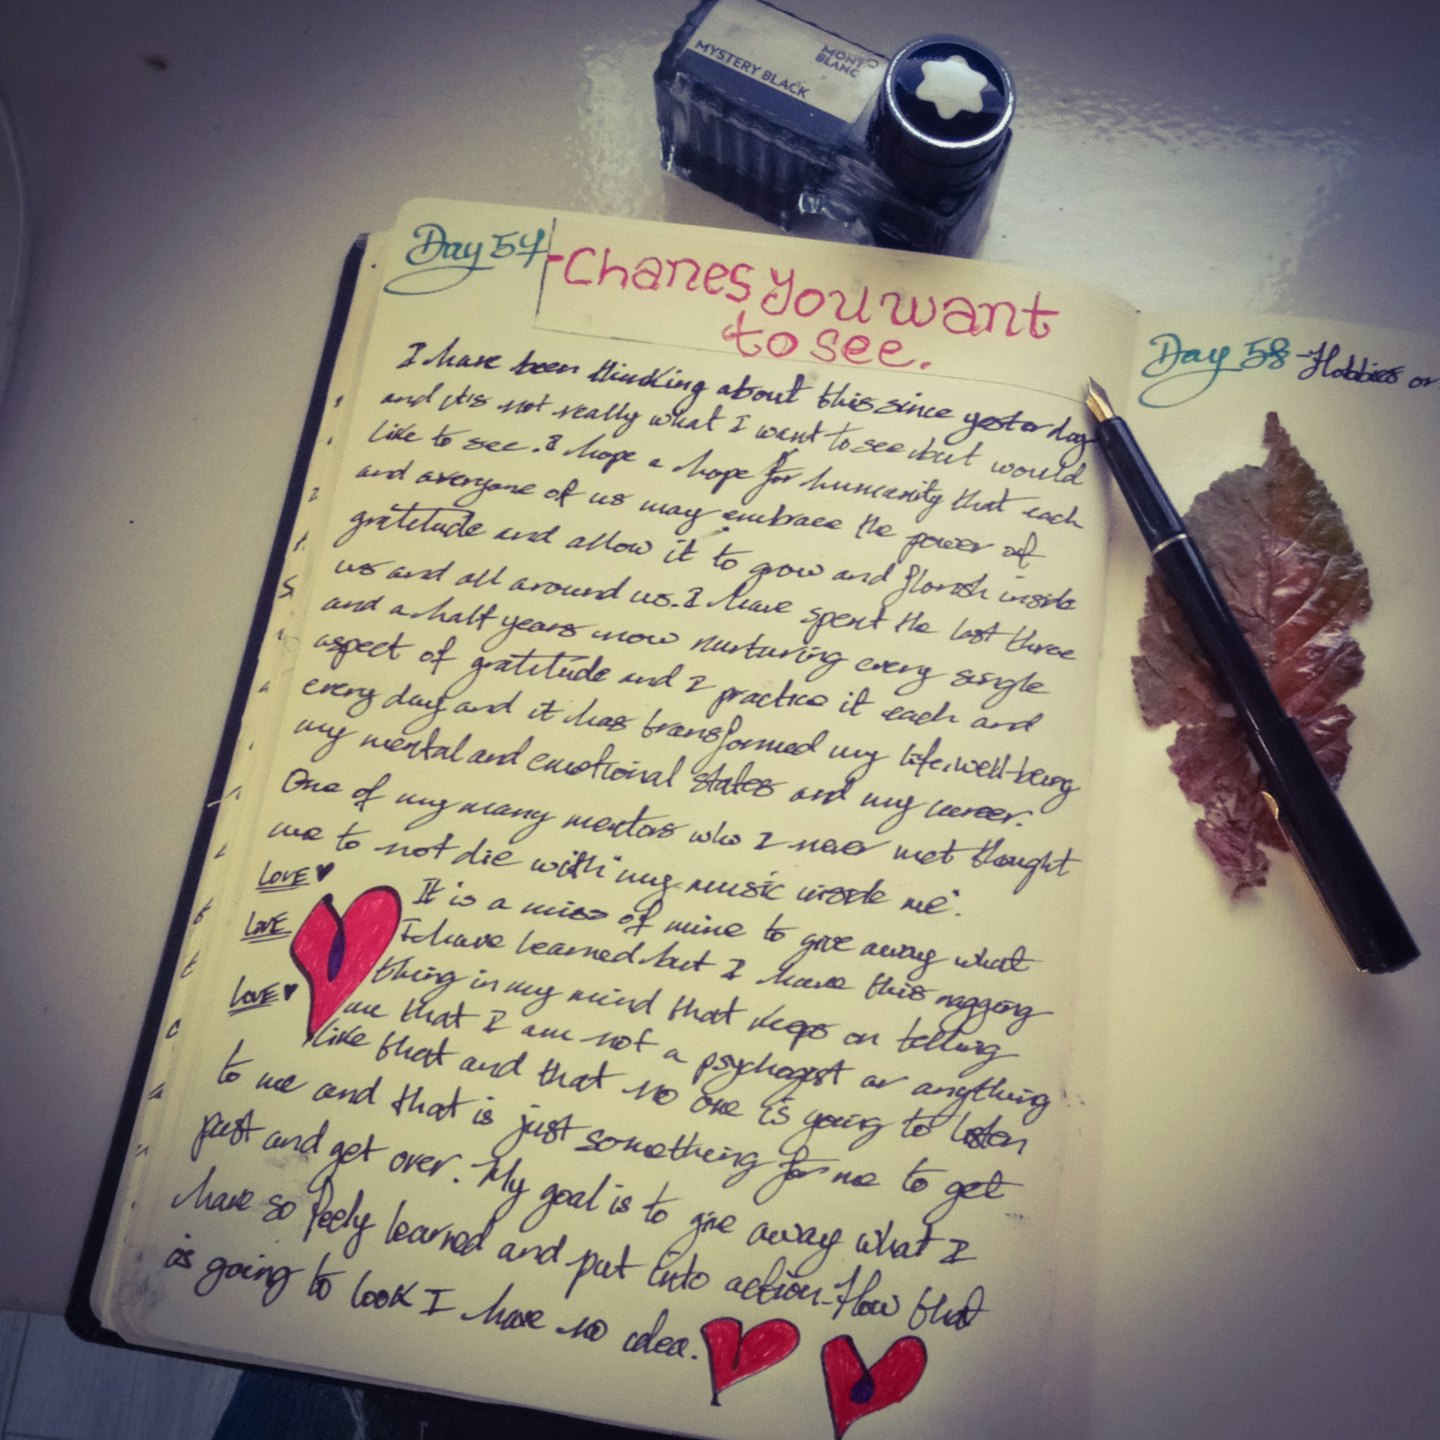 MYSTERY BLACK
MONT
BLANC
Day 57
-Chanes you want
to see.
I have been thinking about this since yesterday
and its not really what I want to see but would
like to see. I hope a hope for humanity that each
and averyone of us may embrace the power of
gratitude and allow it to grow and florish inside
us and all around us. I have spent the last three
and a half years now nurturing every single
aspect of gratitude and I practice it each and
every day and it has transformed my life, well-being
my mental and emotional states and my career.
One of my many mentors who I never met thought
me to not die with "my music inside me".
LOVE ♥
It is a miss of mine to give away what
LOVE
I have learned but I have this nagging
thing in my mind that keeps on telling
LOVE ♥
me that I am not a psychogist or anything
like that and that no one is going to listen
to me and that is just something for me to get
past and get over. My goal is to give away what I
have so feely learned and put into action-How that
is going to look I have no idea.
Day 58 -Hobbies or